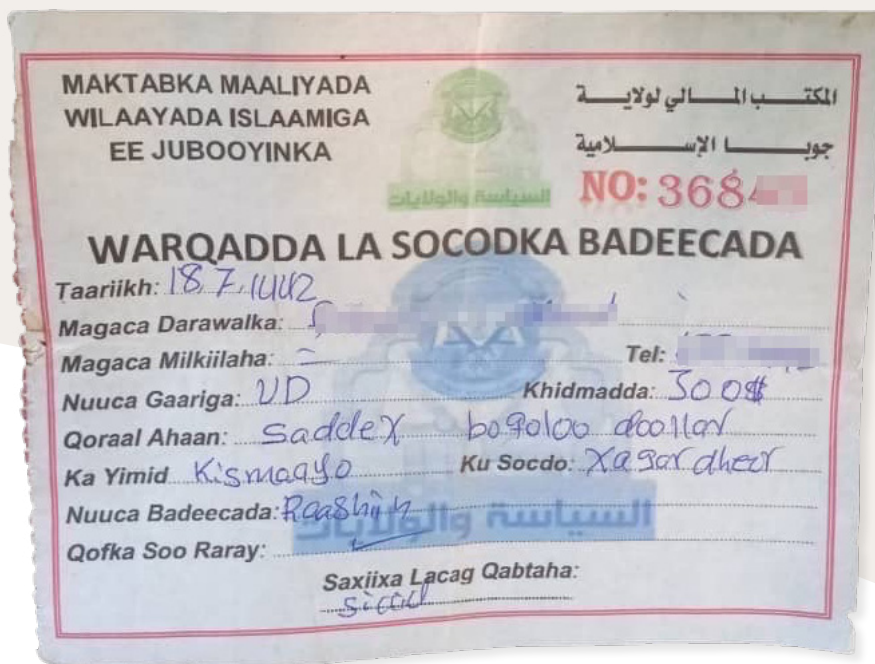 MAKTABKA MAALIYADA
WILAAYADA ISLAAMIGA
EE JUBOOYINKA
المكتب المالي لولاية
جوبا الإسلامية
السياسة والولايات
NO: 368
WARQADDA LA SOCODKA BADEECADA
Taariikh: 18.7.1442
Magaca Darawalka:
Magaca Milkiilaha: = Tel:
Nuuca Gaariga: UD Khidmadda: 300$
Qoraal Ahaan: Saddex boqoloo doollar
Ka Yimid Kismaayo Ku Socdo: Xagar dheer
Nuuca Badeecada: Raashin
السياسة والولايات
Qofka Soo Raray:
Saxiixa Lacag Qabtaha: